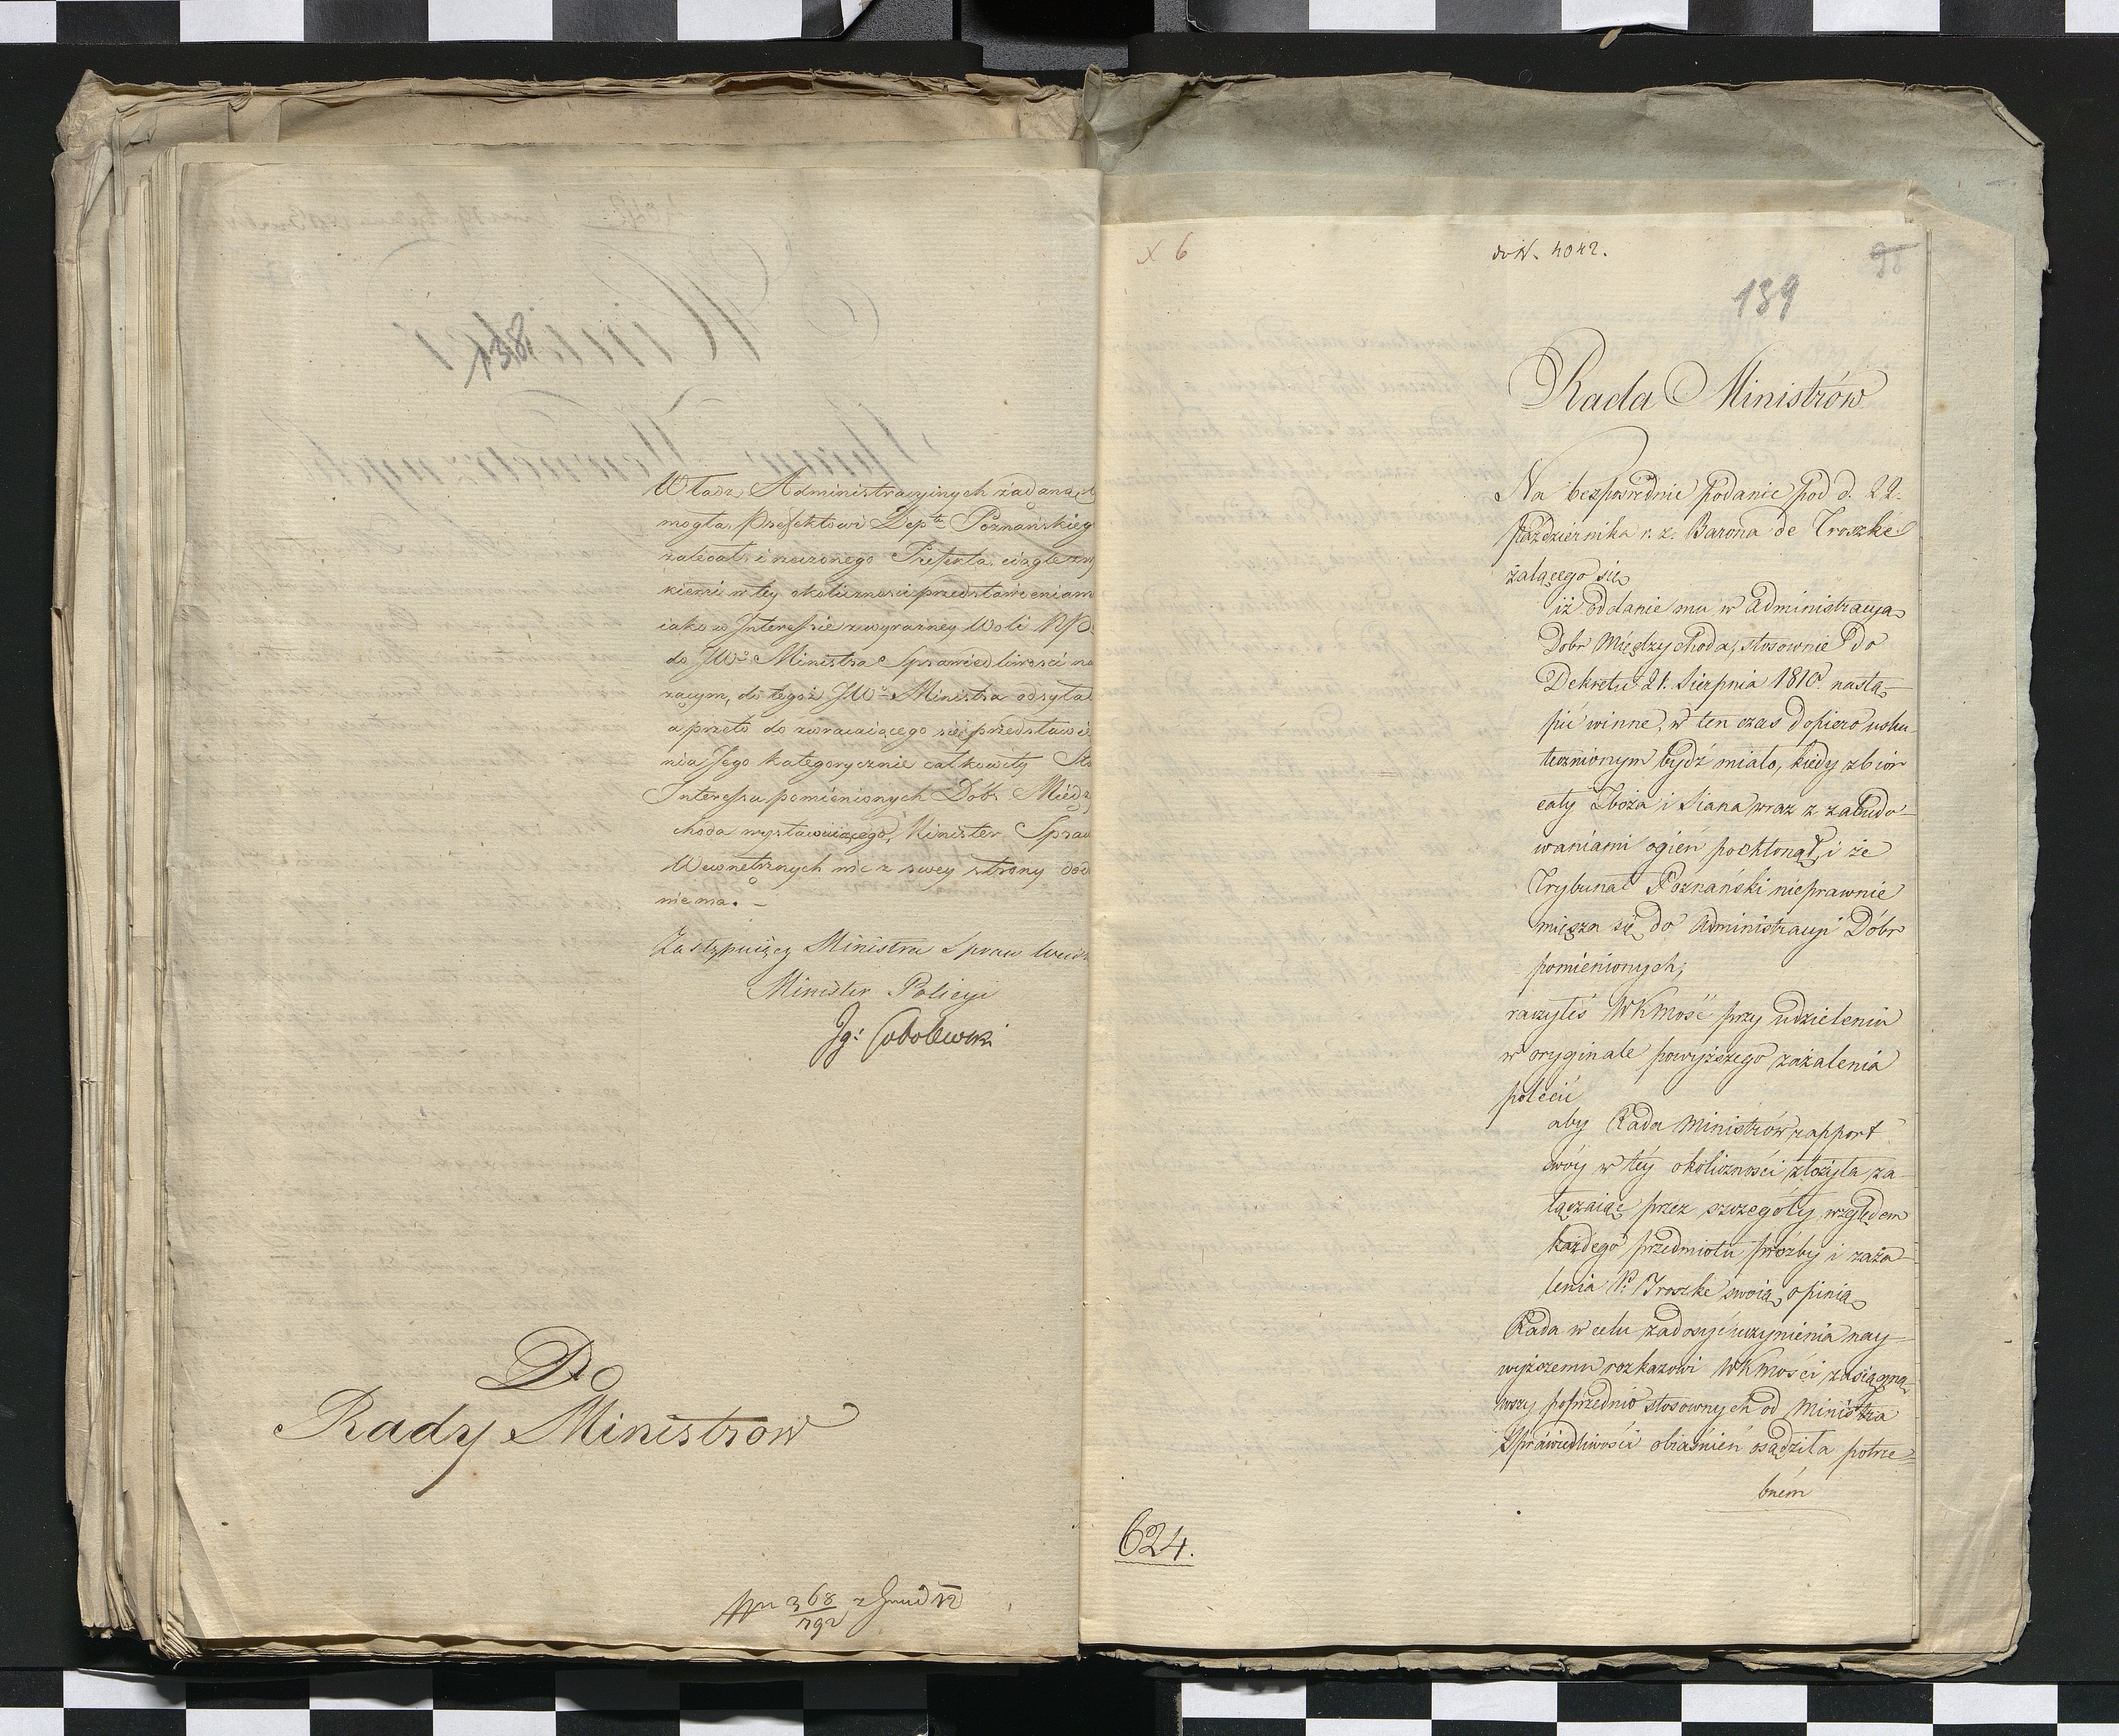 138
Władz Administracyinych żądaną,
mogła, Prefektowi Depte Poznańskieg
zalecał, i rzeczonego Prefekta, ciągle
kiemi w tey okoliczności przedstawieniam
iako w Interessie z wyrazney Woli
do JWo Ministra Sprawiedliwości na
do tegoż JWo Ministra odsyłał
a przeto do zwracaiącego się przedstawie
nia Jego kategorycznie całkowity Sta
Interessu pomienionych Dóbr Miedzy
choda wystawuiącego, Minister Spraw
Wewnetrznych nic z swey strony dod
niema. —
Zastępuiący Ministra Spraw Wew
Minister Policyi
Jg: Sobolewski
Do
Rady Ministrow
368
X 6
do N. 4042.
98
139
Rada Ministrów
Na bezpośrednie podanie pod d. 22.
Października r. z. Barona de Troszké
żalącego się
iż oddanie mu w Administracyą
Dobr Międzychoda, stosownie do
Dekretu 21. Sierpnia 1810. nastą-
pić winne, w ten czas dopiero usku
tecznionym bydź miało, kiedy zbiór
cały Zboża i Siana wraz z zabudo-
waniami ogień pochłonął, i że
Trybunał Poznański nieprawnie
miesza się do Administracyi Dóbr
pomienionych;
raczyłeś WKMość przy udzieleniu
w oryginale powyższego zażalenia
polecić
aby Rada Ministrów rapport
swóy w téy okoliczności złożyła za-
łączaiąc przez szczegóły względem
każdego przedmiotu prozby i zaża-
lenia P. Troszke swoią opinią
Rada w celu zadosyćuczynienia nay-
wyższemu rozkazowi WKMości zasiągną-
wszy poprzednio stosownych od Ministra
Sprawiedliwości obiaśnień osądziła potrze-
bném
624.